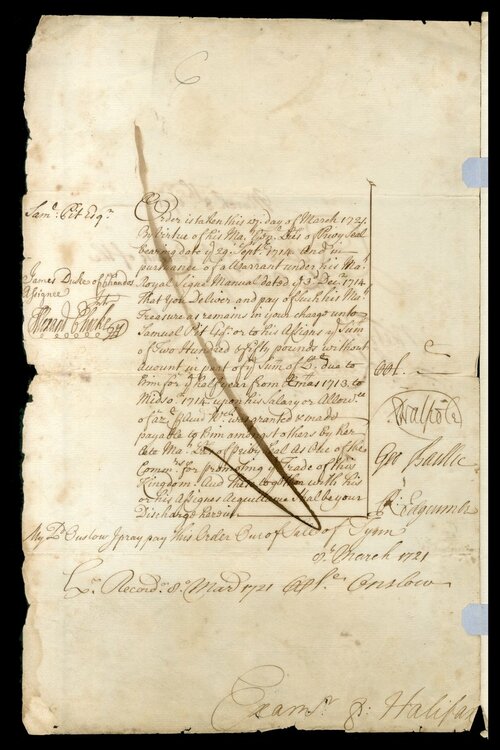 Sam.ll Pit Esq.r
Order is taken this 7 day of March 1721.
By virtue of his Ma.ts L.rs of Privy Seal
bearing date ye 29 Sept.r 1714. And in
pursuance of a Warrant under his Ma.ts
Royal Signe Manual dated ye 3.d Dec.r 1714
That you Deliver and pay of such his Ma.ts
Treasure as remains in your charge unto
Samuel Pit Esq.r or to his Assigns ye Sum
of Two Hundred & fifty pounds without
Account in part of ye Sum of due to
him for ye half year from Xmas 1713. to
Midso.r 1714 upon his Salary or Allow.ce
of was granted & made
payable to him amongst others by her
late Ma.ts L.rs of privy Seal As One of the
Com.rs for promoting ye Trade of this
Kingdom And these together with his
or his Assignes Acquittance shal be your
Discharge herein
James Duke of Chandos
Assignee
R Walpole
Geo Baillie
R: Edgcumbe
My D.r Onslow I pray pay this Order Out of of
8.o March 1721
Ex.r Record.r 8.o Mar 1721 Onslow
Exam.r p: Halifax